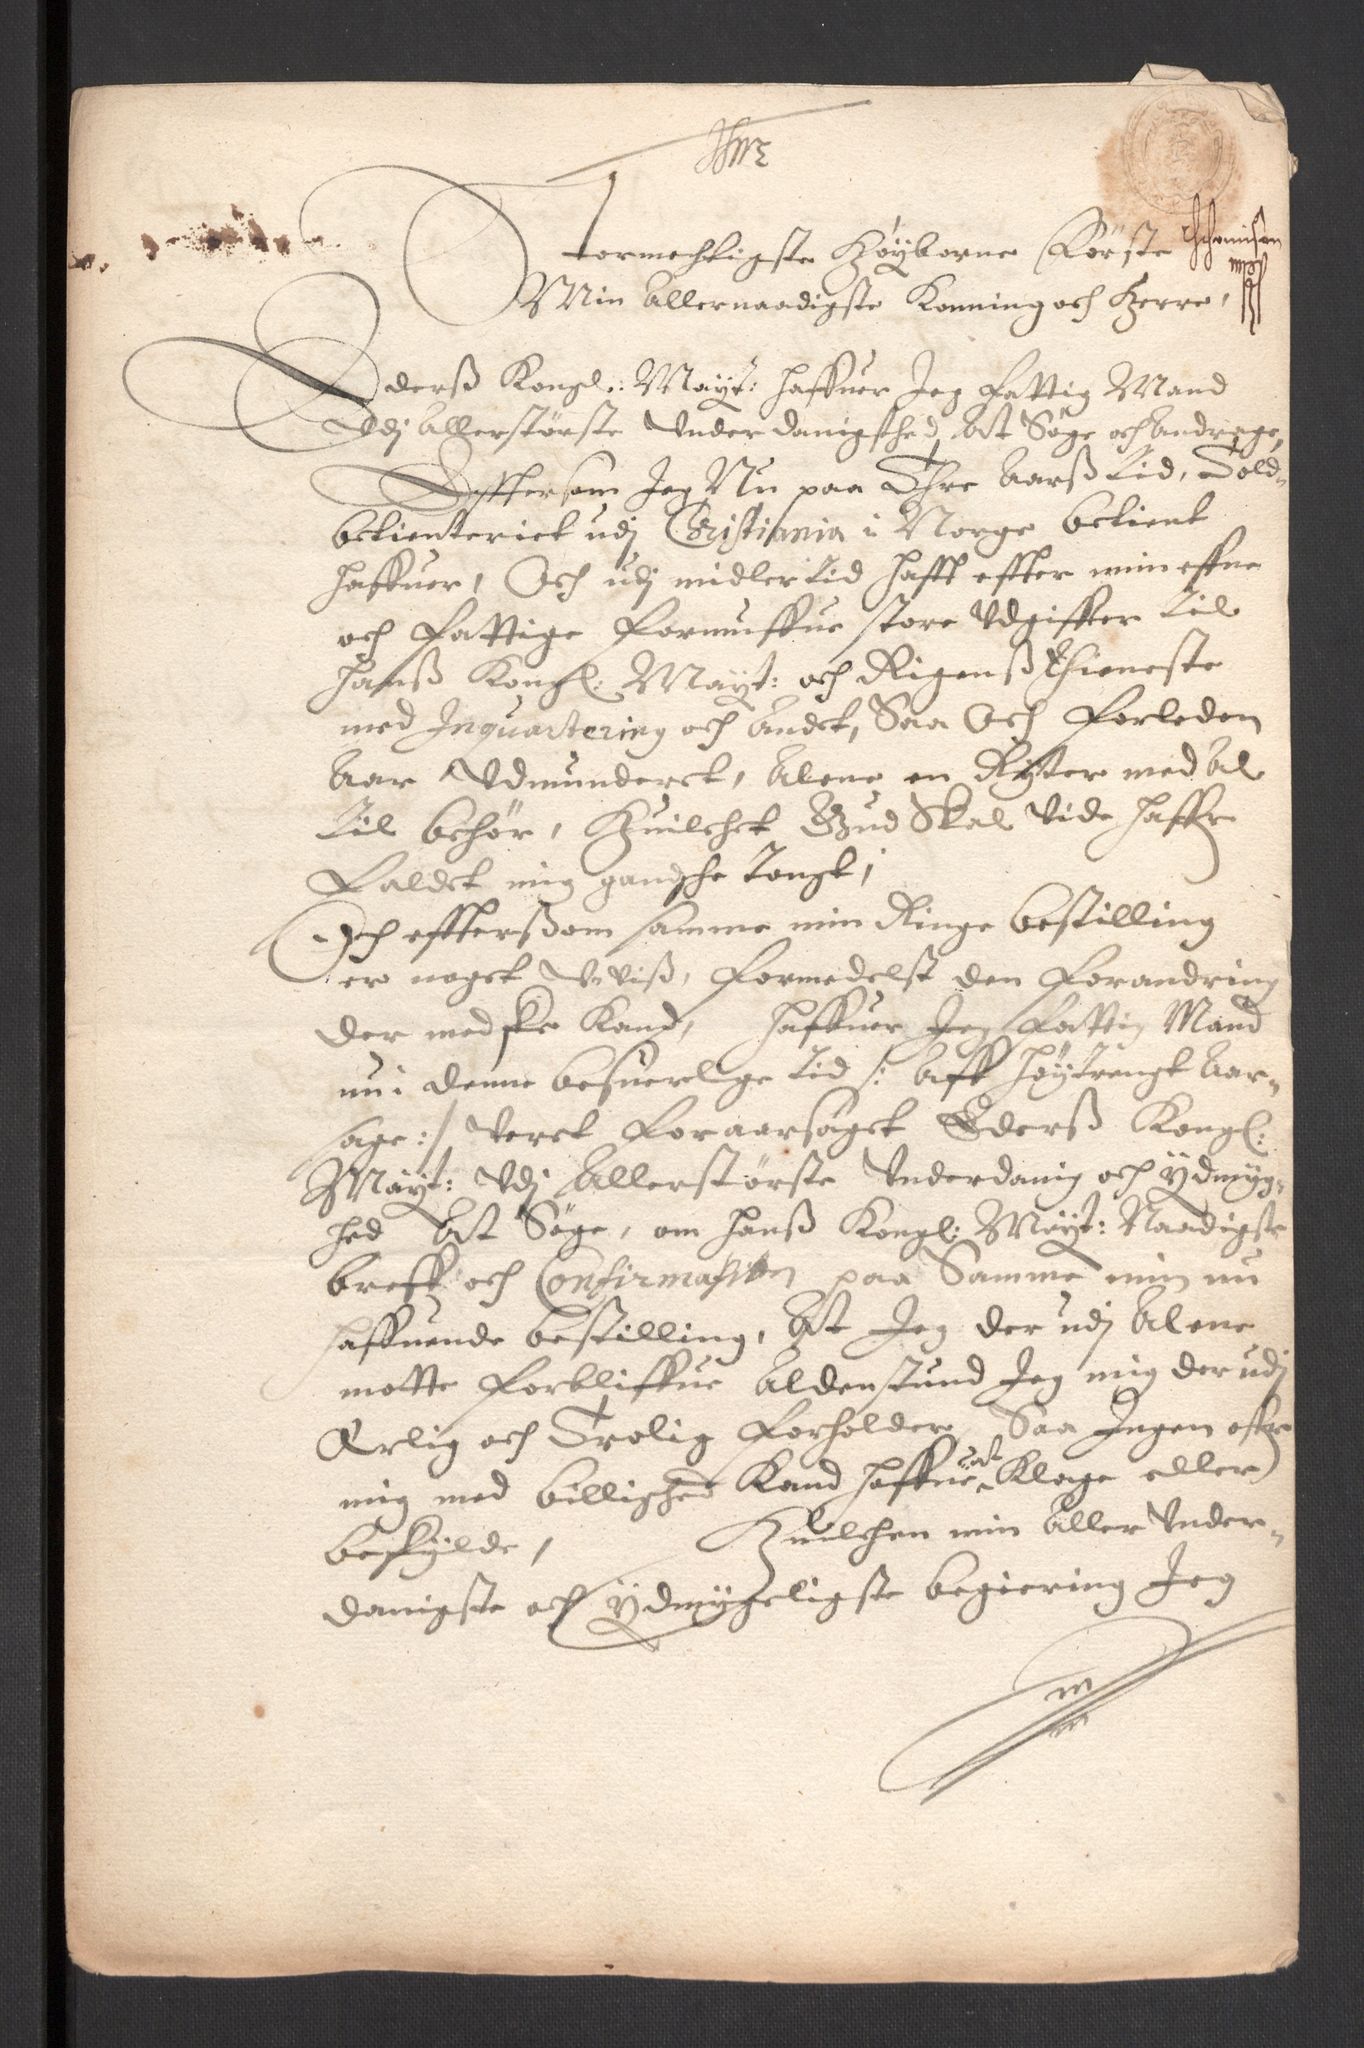 Stormechtigste Høyborne Første
Min Allernaadigste Konning och Herre,
Ederß Kongl: Mayt: haffuer Jeg fattig Mand
Udj Allerstörste Vnderdanigsthed At Søge och Andrage,
Effthersom Jeg Nu paa Thre Aarß tid, Told-
betienteriet udj Christiania i Norge betient
haffuer, Och udj midlertid hafft effter min effne
och fattige formuffue store Vdgiffter til
Hanß Kongl: Mayt: och Rigenß Thieneste
med Inquartering och Andet, Saa Och forleden
Aar Vdmunderet, Alene en Ryter med Al
til behör, Huilchet Gud Skal Vide haffr
faldet mig gandsche tongt,
Och effterßom samme min Ringe bestilling
er noget Vviß, formedelst den forandring
der med ske Kand, haffuer Jeg fattig Mand
nu i denne besuerlige tid /: Aff høytrengt Aar-
sage :/ veret foraarsaget Ederß Kongl:
Mayt: Vdj Allerstörste Vnderdanig och ydmyg-
hed At Søge, om hanß Kongl: Mayt: Naadigste
breff och Confirmation paa Samme min nu
haffuende bestilling, At Jeg der udj Alene
motte forbliffue Aldenstund Jeg mig der udj
Ærlig och Trolig forholder, Saa Ingen offr
mig med billighed Kand haffue at Klage eller
beskylde, Huilchen min Aller Vnder-
danigste och ydmygeligste begiering Jeg